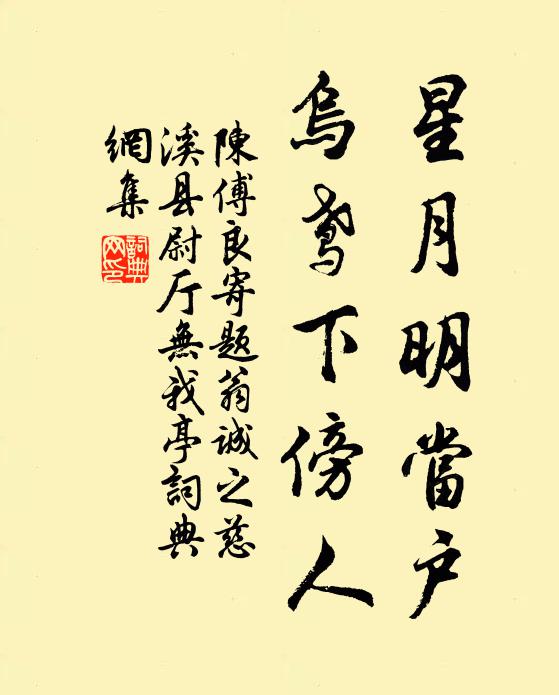 星月明當户
烏鳶下傍人
陳傅良寄題翁诚之慈
溪县尉厅無我亭詞典
網集
詞典
网印